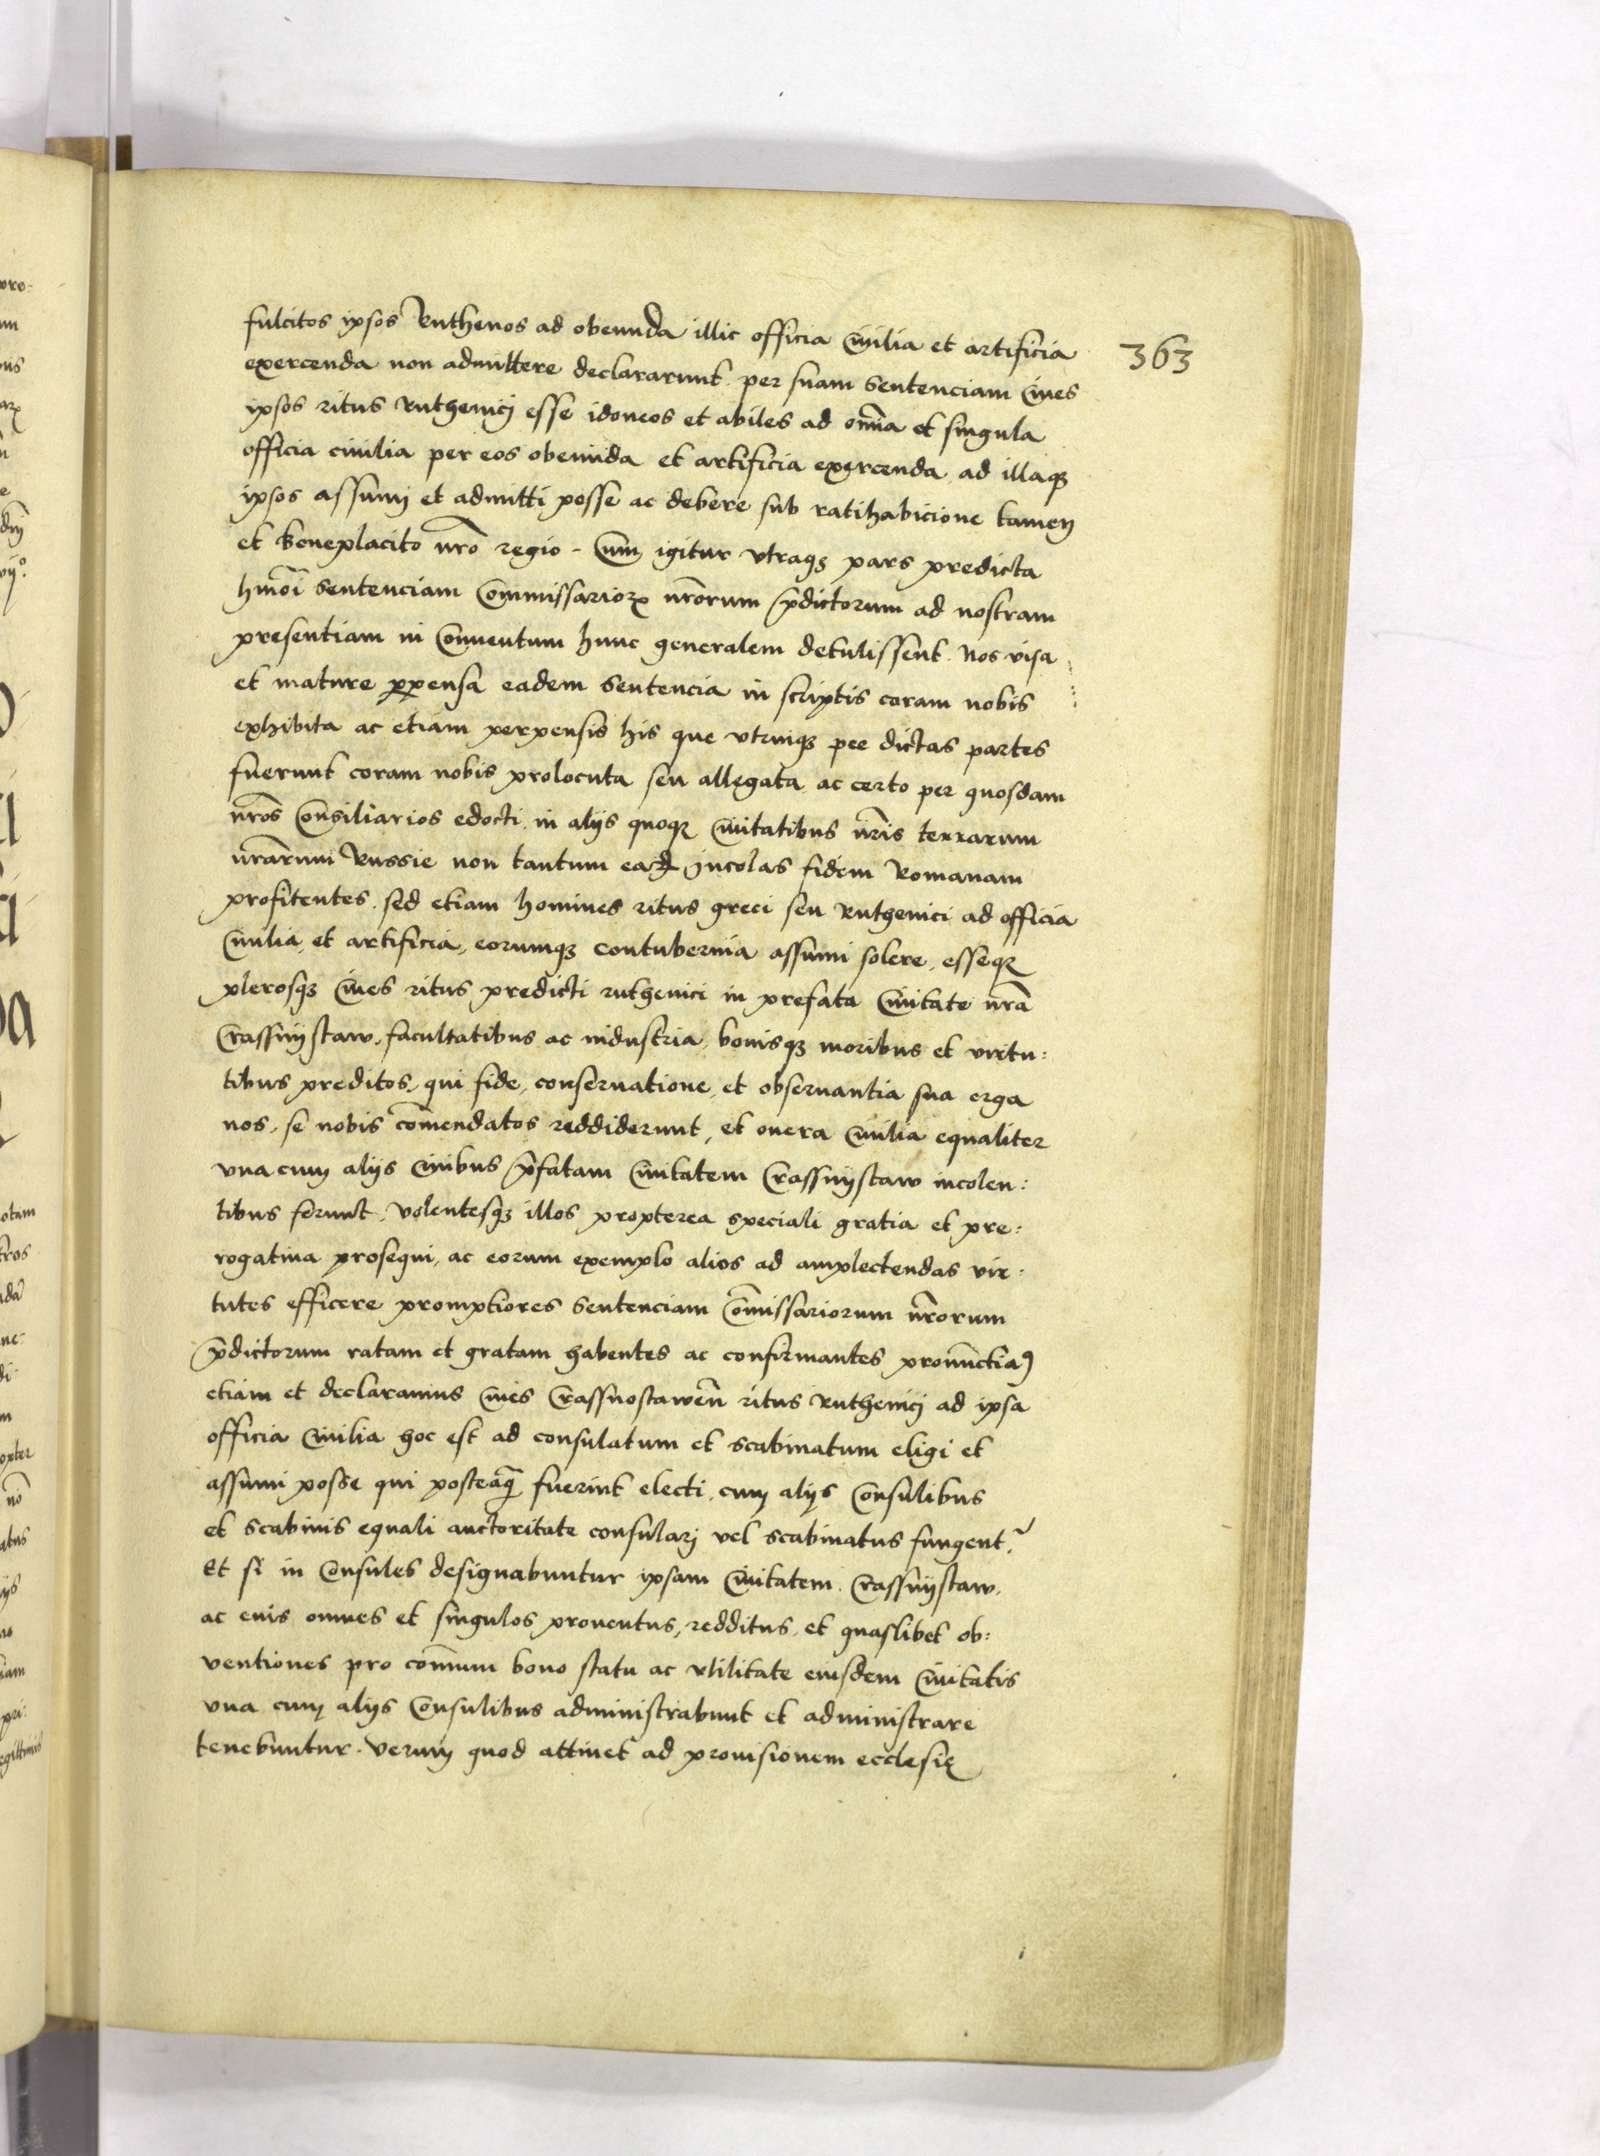 fulcitos ipsos Ruthenos ad obeunda illic officia Ciuilia et artificia
363
exercenda non admittere declararunt per suam Sentenciam Ciues
ipsos ritus Ruthenicj esse idoneos et abiles ad om̄ia et singula
officia ciuilia per eos obeunda et artificia exercenda ad illaqꝫ
ipsos assumj et admitti posse ac debere sub ratihabicione tamen
et beneplacito nr̄o regio. Cum igitur vtraqꝫ pars predicta
hm̄oi Sentenciam Commissarioꝝ nr̄orum p̄dictorum ad nostram
presentiam in Conuentum hunc generalem detulissent. Nos visa
et mature ꝑpensa eadem Sentencia in scriptis coram nobis
exhibita ac etiam perpensis his que vtrinqꝫ pre dictas partes
fuerunt coram nobis prolocuta seu allegata ac certo per quosdam
nr̄os Consiliarios edocti in alijs quoqꝫ Ciuitatibus nr̄is terrarum
nr̄arum Russie non tantum eaꝝ Incolas fidem Romanam
profitentes. sed etiam homines ritus greci seu Ruthenici ad officia
Ciuilia, et artificia, eorumqꝫ contubernia assumi solere, esseqꝫ
plerosqꝫ Ciues ritus predicti ruthenici in prefata Ciuitate nr̄a
Crassnijstaw, facultatibus ac industria, bonisqꝫ moribus et virtu:
tibus preditos, qui fide, conseruatione, et obseruantia sua erga
nos, se nobis com̄endatos reddiderunt, et onera Ciuilia equaliter
vna cum alijs Ciuibus p̄fatam Ciuitatem Crassnijstaw incolen:
tibus ferunt. Volentesqꝫ illos propterea speciali gratia et pre:
rogatiua prosequi, ac eorum exemplo alios ad amplectendas vir:
tutes efficere promptiores Sentenciam Com̄issariorum nr̄orum
p̄dictorum ratam et gratam habentes ac confirmantes pronūctiaꝯ
etiam et declaramus Ciues Crassnostawen̄ ritus Ruthenicj ad ipsa
officia Ciuilia hoc est ad consulatum et scabinatum eligi et
assumi posse qui posteaq̄ fuerint electi, cum alijs Consulibus
et scabinis equali auctoritate consularj vel scabinatus fungent᷑.
Et si in Consules designabuntur ipsam Ciuitatem Crassnijstaw,
ac eius omnes et singulos prouentus, redditus, et quaslibet ob:
ventiones pro com̄um bono statu ac vtilitate eiusdem Ciuitatis
vna cum alijs Consulibus administrabunt et administrare
tenebuntur. Verum quod attinet ad prouisionem ecclesię